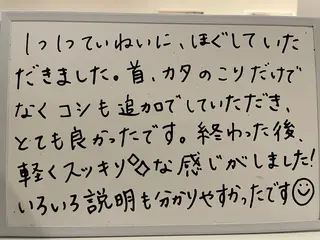 1つ1つていねいに、ほぐしていた
だきました。首、カタのこりだけで
なくコシも追加でしていただき、
とても良かったです。終わった後、
軽くスッキリ◇◇な感じがしました!
いろいろ説明も分かりやすかったです☺